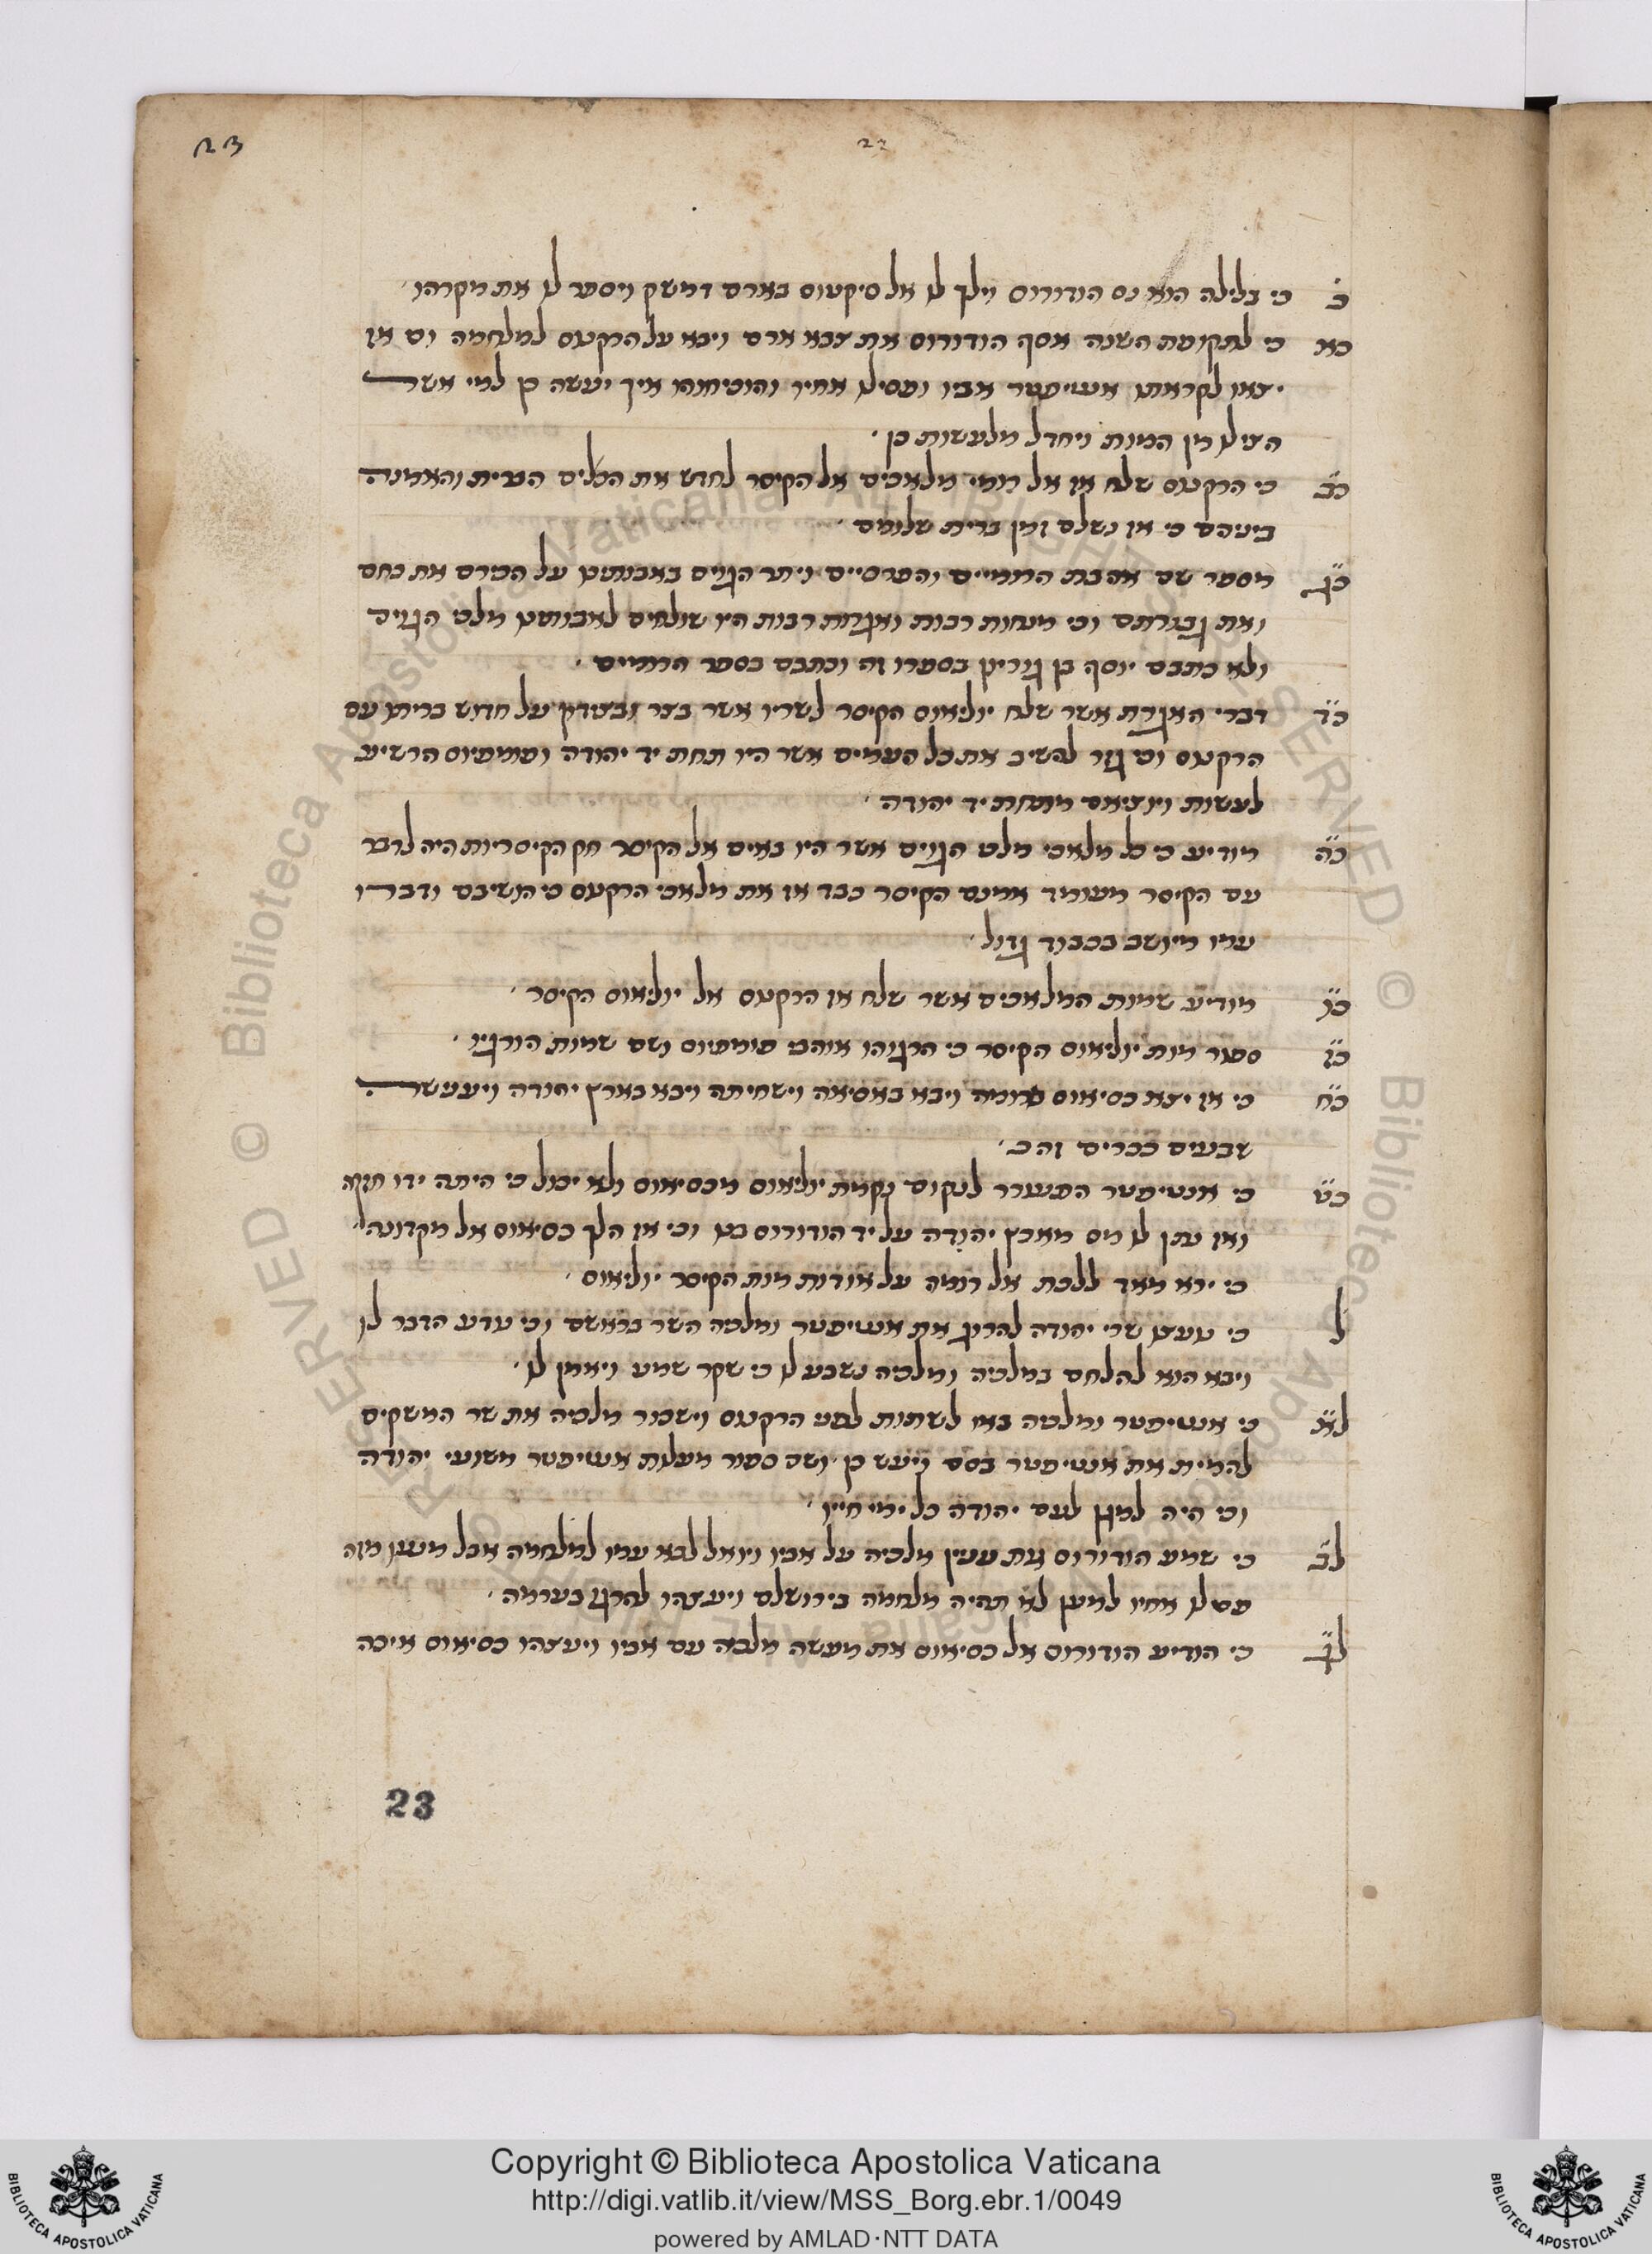 23
23
כ כי בלילה הוא נס הודורוס וילך לו אל סיקטוס בארם דמשק ויספר לו את מקרהו
כא כי לתקופת השנה אסף הודורוס את צבא ארם ויבא על הרקנוס למלחמה ושם אז
יצאו לקראתו אנטיפטר אביו ופסילו אחיו והוכיחוהו איך יעשה כן למי אשר
הצילו מן המות ויחדל מלעשות כן
כב כי הרקנוס שלח אז אל רומי מלאכים אל הקיסר לחדש את הברית והאמנה
ביניהם כי אז נשלם זמן ברית שלומם
כג מספר שם אהבת הרומיים והפרסיים ויתר הגוים באבותינו על הכירם את כחם
ואת גבורתם וכי מנחות רבות ואגרות רבות היו שולחים לאבותינו מלכי הגוים
ולא כתבם יוסף בן גוריון בספרו זה וכתבם בספר הרומיים
כד דברי האגרת אשר שלח יוליאוס הקיסר לשריו אשר בצר ובצידון על חדוש בריתו עם
הרקנוס ושם גזר להשיב את כל העמים אשר היו תחת יד יהודה ופומפיוס הרשיע
לעשות ויוציאם מתחת יד יהודה
כה מודיע כי כל מלאכי מלכי הגוים אשר היו באים אל הקיסר חק הקיסריות היה לדבר
עם הקיסר מעומד אמנם הקיסר כבד אז את מלאכי הרקנוס כי הושיבם ודברו
עמו מיושב בכבוד גדול
כו מודיע שמות המלאכים אשר שלח אז הרקנוס אל יוליאוס הקיסר
כז ספור מות יוליאוס הקיסר כי הרגוהו אוהבי פומפיוס ושם שמות הורגיו
כח כי אז יצא כסיאוס מרומה ויבא באסיאה וישחיתה ויבא בארץ יהודה ויענשה
שבעים ככרים זהב
כט כי אנטיפטר התעורר לנקום נקמת יוליאוס מכסיאוס ולא יכול כי היתה ידו חזקה
ואז נתן לו מס מארץ יהודה על יד הודורוס בנו וכי אז הלך כסיאוס אל מקדוניה
כי ירא מאד ללכת אל רומה על אודות מות הקיסר יוליאוס
ל כי נועצו שרי יהודה להרוג את אנטיפטר ומלכיה השר בראשם וכי נודע הדבר לו
ויבא הוא להלחם במלכיה ומלכיה נשבע לו כי שקר שמע ויאמן לו
לא כי אנטיפטר ומלכיה באו לשתות לפני הרקנוס וישכור מלכיה את שר המשקים
להמית את אנטיפטר בסם ויעש כן ושם ספור מעלות אנטיפטר משועי יהודה
וכי היה למגן לעם יהודה כל ימי חייו
לב כי שמע הודורוס את ענין מלכיה על אביו ויואל לבא עמו למלחמה אבל מנעו מזה
פסילו אחיו למען לא תהיה מלחמה בירושלם ויעצהו להרגו בערמה
לג כי הודיע הודורוס אל כסיאוס את מעשה מלכיה עם אביו ויעצהו כסיאוס איכה
23
© Biblioteca Apostolica Vaticana ALL RIGHTS RESERVED
Copyright © Biblioteca Apostolica Vaticana
http://digi.vatlib.it/view/MSS_Borg.ebr.1/0049
powered by AMLAD·NTT DATA
BIBLIOTECA APOSTOLICA VATICANA
BIBLIOTECA APOSTOLICA VATICANA